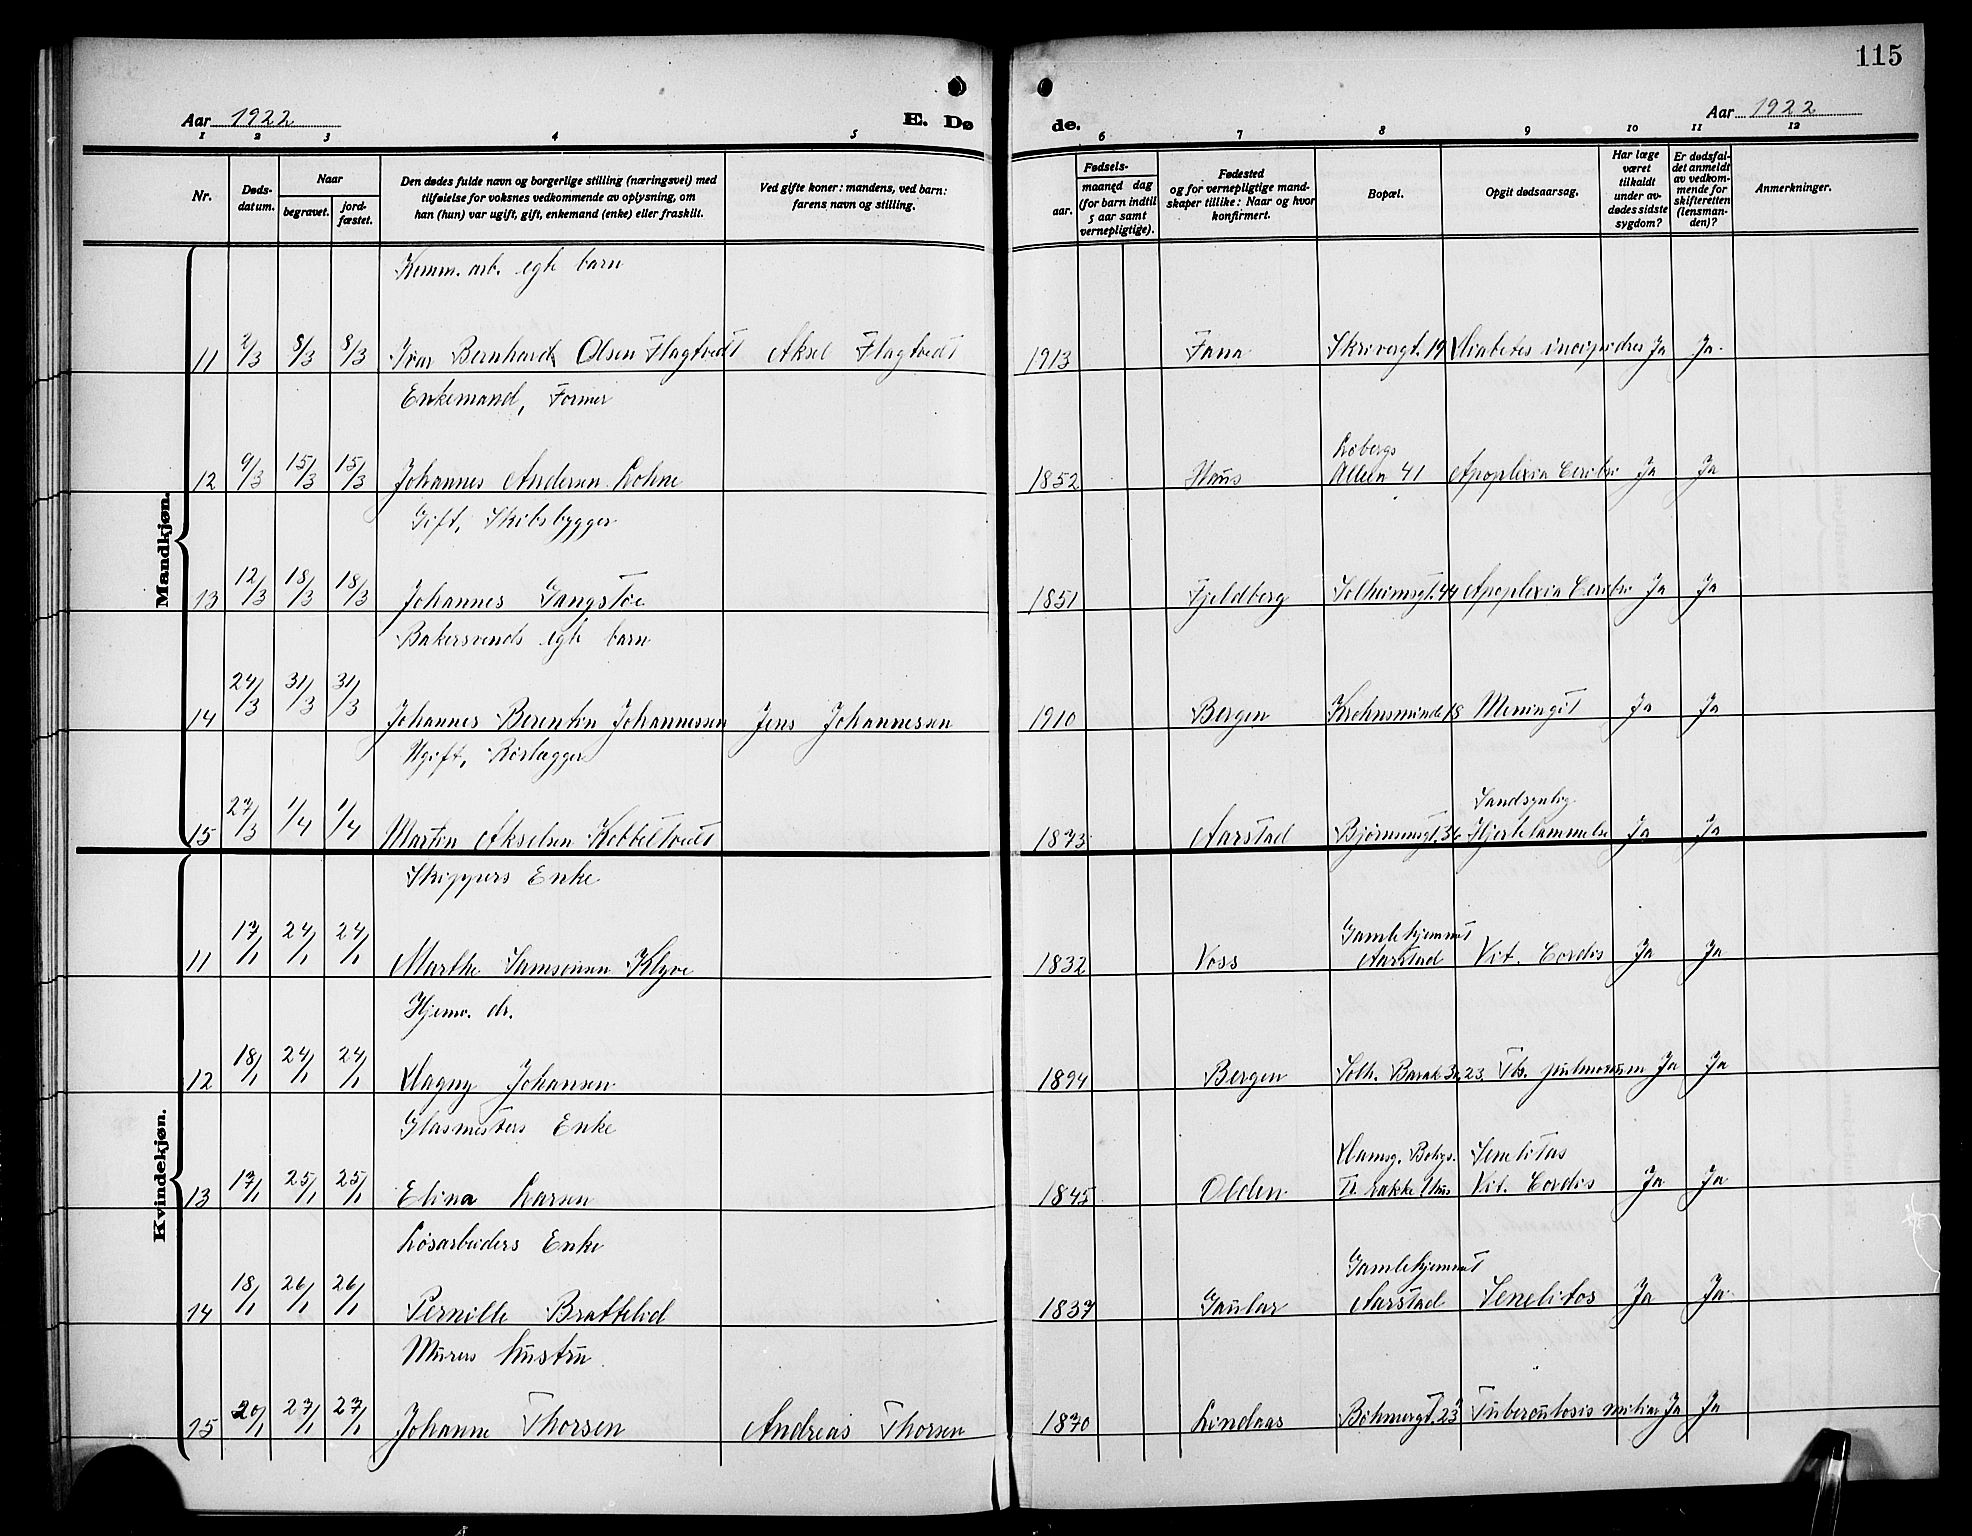 115
Aar 1922
E. Dø
de.
Aar 1922
1 2 3 4 5 6 7 8 9 10 11 12
Nr.
Døds-
datum.
Naar
begravet.
jord-
fæstet.
Den dødes fulde navn og borgerlige stilling (næringsvei) med
tilføielse for voksnes vedkommende av oplysning, om
han (hun) var ugift, gift, enkemand (enke) eller fraskilt.
Ved gifte koner: mandens, ved barn:
farens navn og stilling.
Fødsels-
aar.
maaned dag
(for barn indtil
5 aar samt
vernepligtige).
Fødested
og for vernepligtige mand-
skaper tillike: Naar og hvor
konfirmert.
Bopæl.
Opgit dødsaarsag.
Har læge
været
tilkaldt
under av-
dødes sidste
sygdom?
Er dødsfal-
det anmeldt
av vedkom-
mende for
skifteretten
(lensman-
den)?
Anmerkninger.
Mandkjøn.
Komm. arb. egte barn
11 2/3 8/3 8/3 Ivar Bernhard Olsen Flagtvedt Aksel Flagtvedt 1913 Fana Skrivergt. 19 Diabetes incipides Ja Ja
Enkemand, Former
Løbergs
12 9/3 15/3 15/3 Johannes Andersen Lohne 1852 Haus Alleen 41 Apoplexia Cerebri Ja Ja
Gift, Skibsbygger
13 12/3 18/3 18/3 Johannes Gangstøe 1851 Fjeldberg Solheimsgt. 44 Apoplexia Cerebri Ja Ja
Bakersvends egte barn
14 24/3 31/3 31/3 Johannes Berentin Johannessen Jens Johannesen 1910 Bergen Krohnsminde 18 Meningit Ja Ja
Ugift, Rørlægger
Sandsynlig
15 27/3 1/4 1/4 Martin Akselsen Kobbeltvedt 1873 Aarstad Bjørnsonsgt. 36 Hjertelammelse Ja Ja
Kvindekjøn.
Skippers Enke
Gamlehjemmet
11 17/1 24/1 24/1 Marthe Samsonsen Klyve 1832 Voss Aarstad Vit. Cordis Ja Ja
Hjemv. dr.
12 18/1 24/1 24/1 Dagny Johansen 1894 Bergen Solh. Barak 3 23 Tb. pulmonum Ja Ja
Glasmesters Enke
Damsg. Boligs. Senilitas
13 17/1 25/1 25/1 Elina Larsen 1845 Olden række 1 hus Vit. Cordis Ja Ja
Løsarbeiders Enke
Gamlehjemmet
14 18/1 26/1 26/1 Pernille Brattelid 1837 Gaular Aarstad Senelitas Ja Ja
Murers hustru
15 20/1 27/1 27/1 Johanne Thorsen Andreas Thorsen 1870 Lindaas Bøhmergt. 23 Tuberculosis miliar Ja Ja